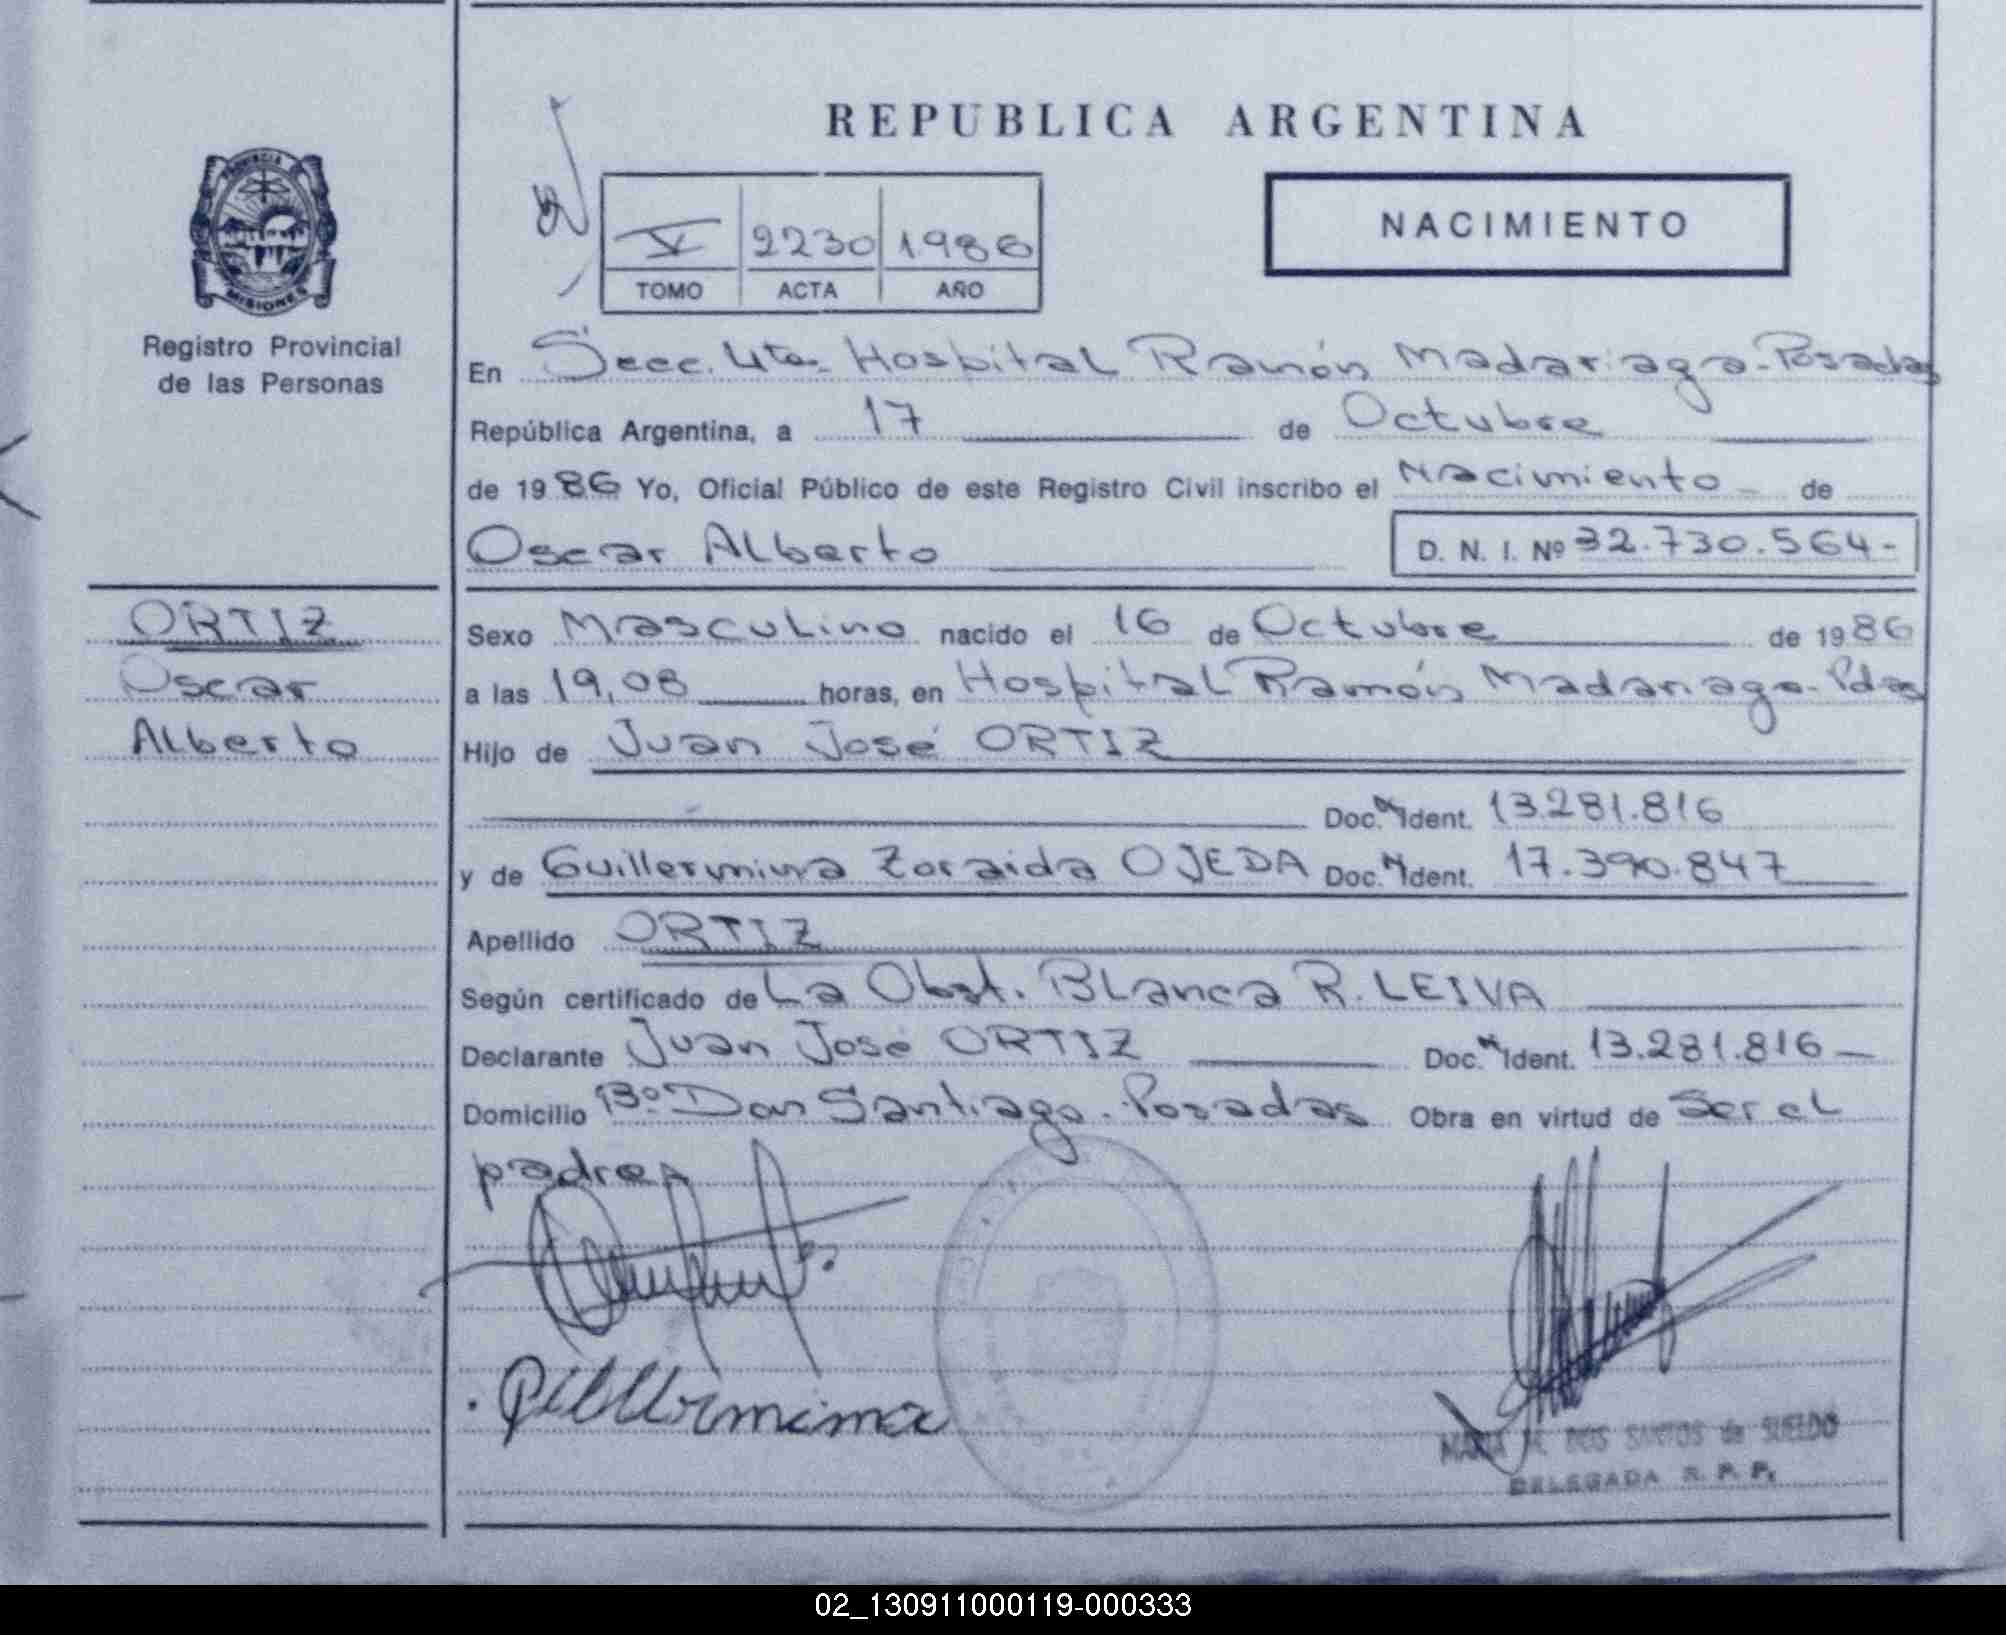 REPUBLICA ARGENTINA
PROVINCIA
MISIONES
Registro Provincial
de las Personas
V 2230 1986
TOMO ACTA AÑO
NACIMIENTO
En Secc. 4ta. Hospital Ramón Madariaga - Posadas
República Argentina, a 17 de Octubre
de 1986 Yo, Oficial Público de este Registro Civil inscribo el Nacimiento de
Oscar Alberto D. N. I. Nº 32.730.564-
ORTIZ
Oscar
Alberto
Sexo Masculino nacido el 16 de Octubre de 1986
a las 19,08 horas, en Hospital Ramón Madariaga - Pdas
Hijo de Juan José ORTIZ
Doc. N Ident. 13.281.816
y de Guillermina Zoraida OJEDA Doc. N Ident. 17.390.847
Apellido ORTIZ
Según certificado de La Obst. Blanca R. LEIVA
Declarante Juan José ORTIZ Doc. N Ident. 13.281.816
Domicilio Bº Don Santiago - Posadas Obra en virtud de Ser el
padre
Guillermina
MARIA M. DOS SANTOS de SUELDO
DELEGADA R. P. P.
02_130911000119-000333